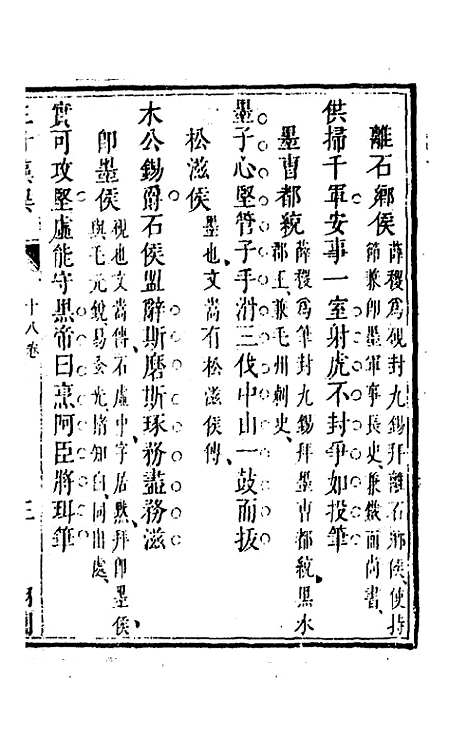 離石鄉侯 薛稷爲硯封九錫拜離石鄉侯、使持
節兼即墨軍事長史、兼鐵面尚書、
供掃千軍安事一室射虎不封爭如投筆
墨曹都統 薛稷爲筆封九錫拜墨曹都統、黑水
郡王、兼毛州刺史、
墨子心堅管子手滑三伐中山一鼓而拔
松滋侯 墨也、文嵩有松滋侯傳、
木公錫爵石侯盟辭斯磨斯琢務盡務滋
即墨侯 硯也、文嵩傳、石虛中、字居默、拜即墨侯、
與毛元銳、易玄光、楮知白、同出處、
實可攻堅虛能守黑帝曰烹阿臣將珥筆
十八卷
三